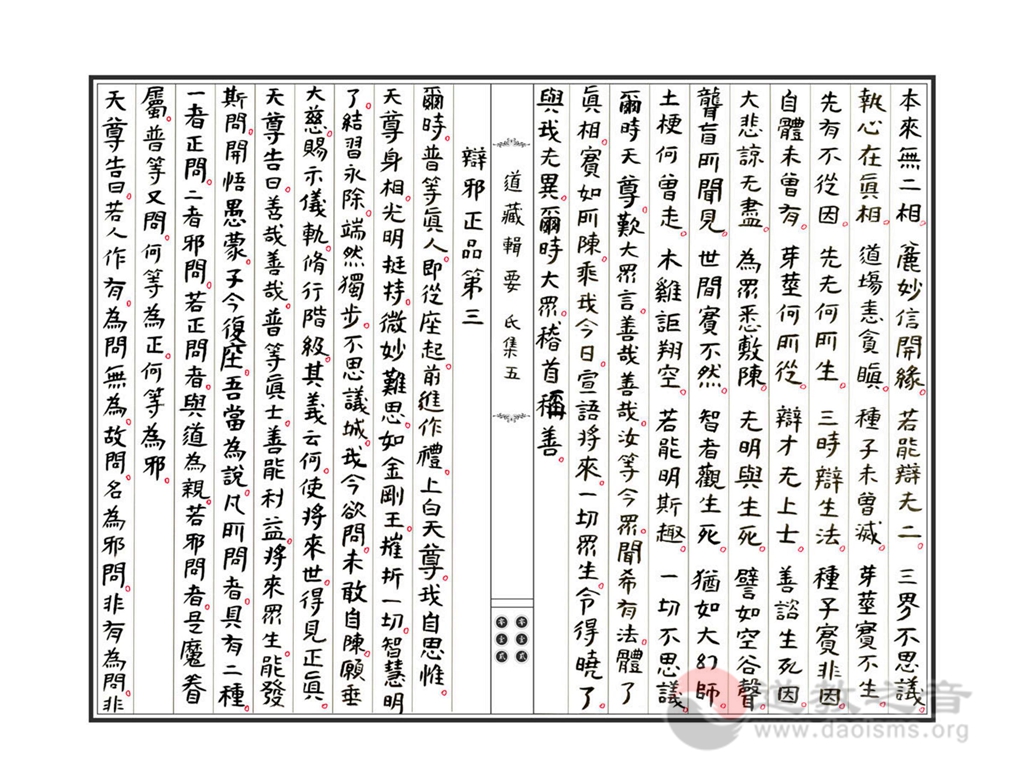 本來無二相。麁妙信開緣。若能辯无二。三界不思議。
執心在眞相。道場恚貪瞋。種子未曾滅。芽莖實不生。
先有不從因。先无何所生。三時辯生法。種子實非因。
自體未曾有。芽莖何所從。辯才无上士。善說生死因。
大悲諒无盡。為眾悉敷陳。无明與生死。譬如空谷聲。
聾盲所聞見。世間實不然。智者觀生死。猶如大幻師。
土梗何曾走。木雞詎翔空。若能明斯趣。一切不思議。
爾時天尊歎大眾言。善哉善哉。汝等今眾。聞希有法。體了
眞相。實如所陳。乘我今日。宣語將來。一切眾生。令得曉了。
與我无異。爾時大眾。稽首稱善。
道藏輯要 氐集五
辯邪正品第三
爾時。普等眞人。即從座起。前進作禮。上白天尊。我自思惟。
天尊身相。光明挺特。微妙難思。如金剛王。摧折一切。智慧明
了。結習永除。端然獨步。不思議城。我今欲問。未敢自陳。願垂
大慈。賜示儀軌。脩行階級。其義云何。使將來世。得見正眞。
天尊告曰。善哉善哉。普等眞士。善能利益。將來眾生。能發
斯問。開悟愚蒙。子今復座。吾當為說。凡所問者。具有二種。
一者正問。二者邪問。若正問者。與道為親。若邪問者。是魔眷
屬。普等又問。何等為正。何等為邪。
天尊告曰。若人作有。為問無為。故問。名為邪問。非有為問。非
道教之音
www.daoisms.org